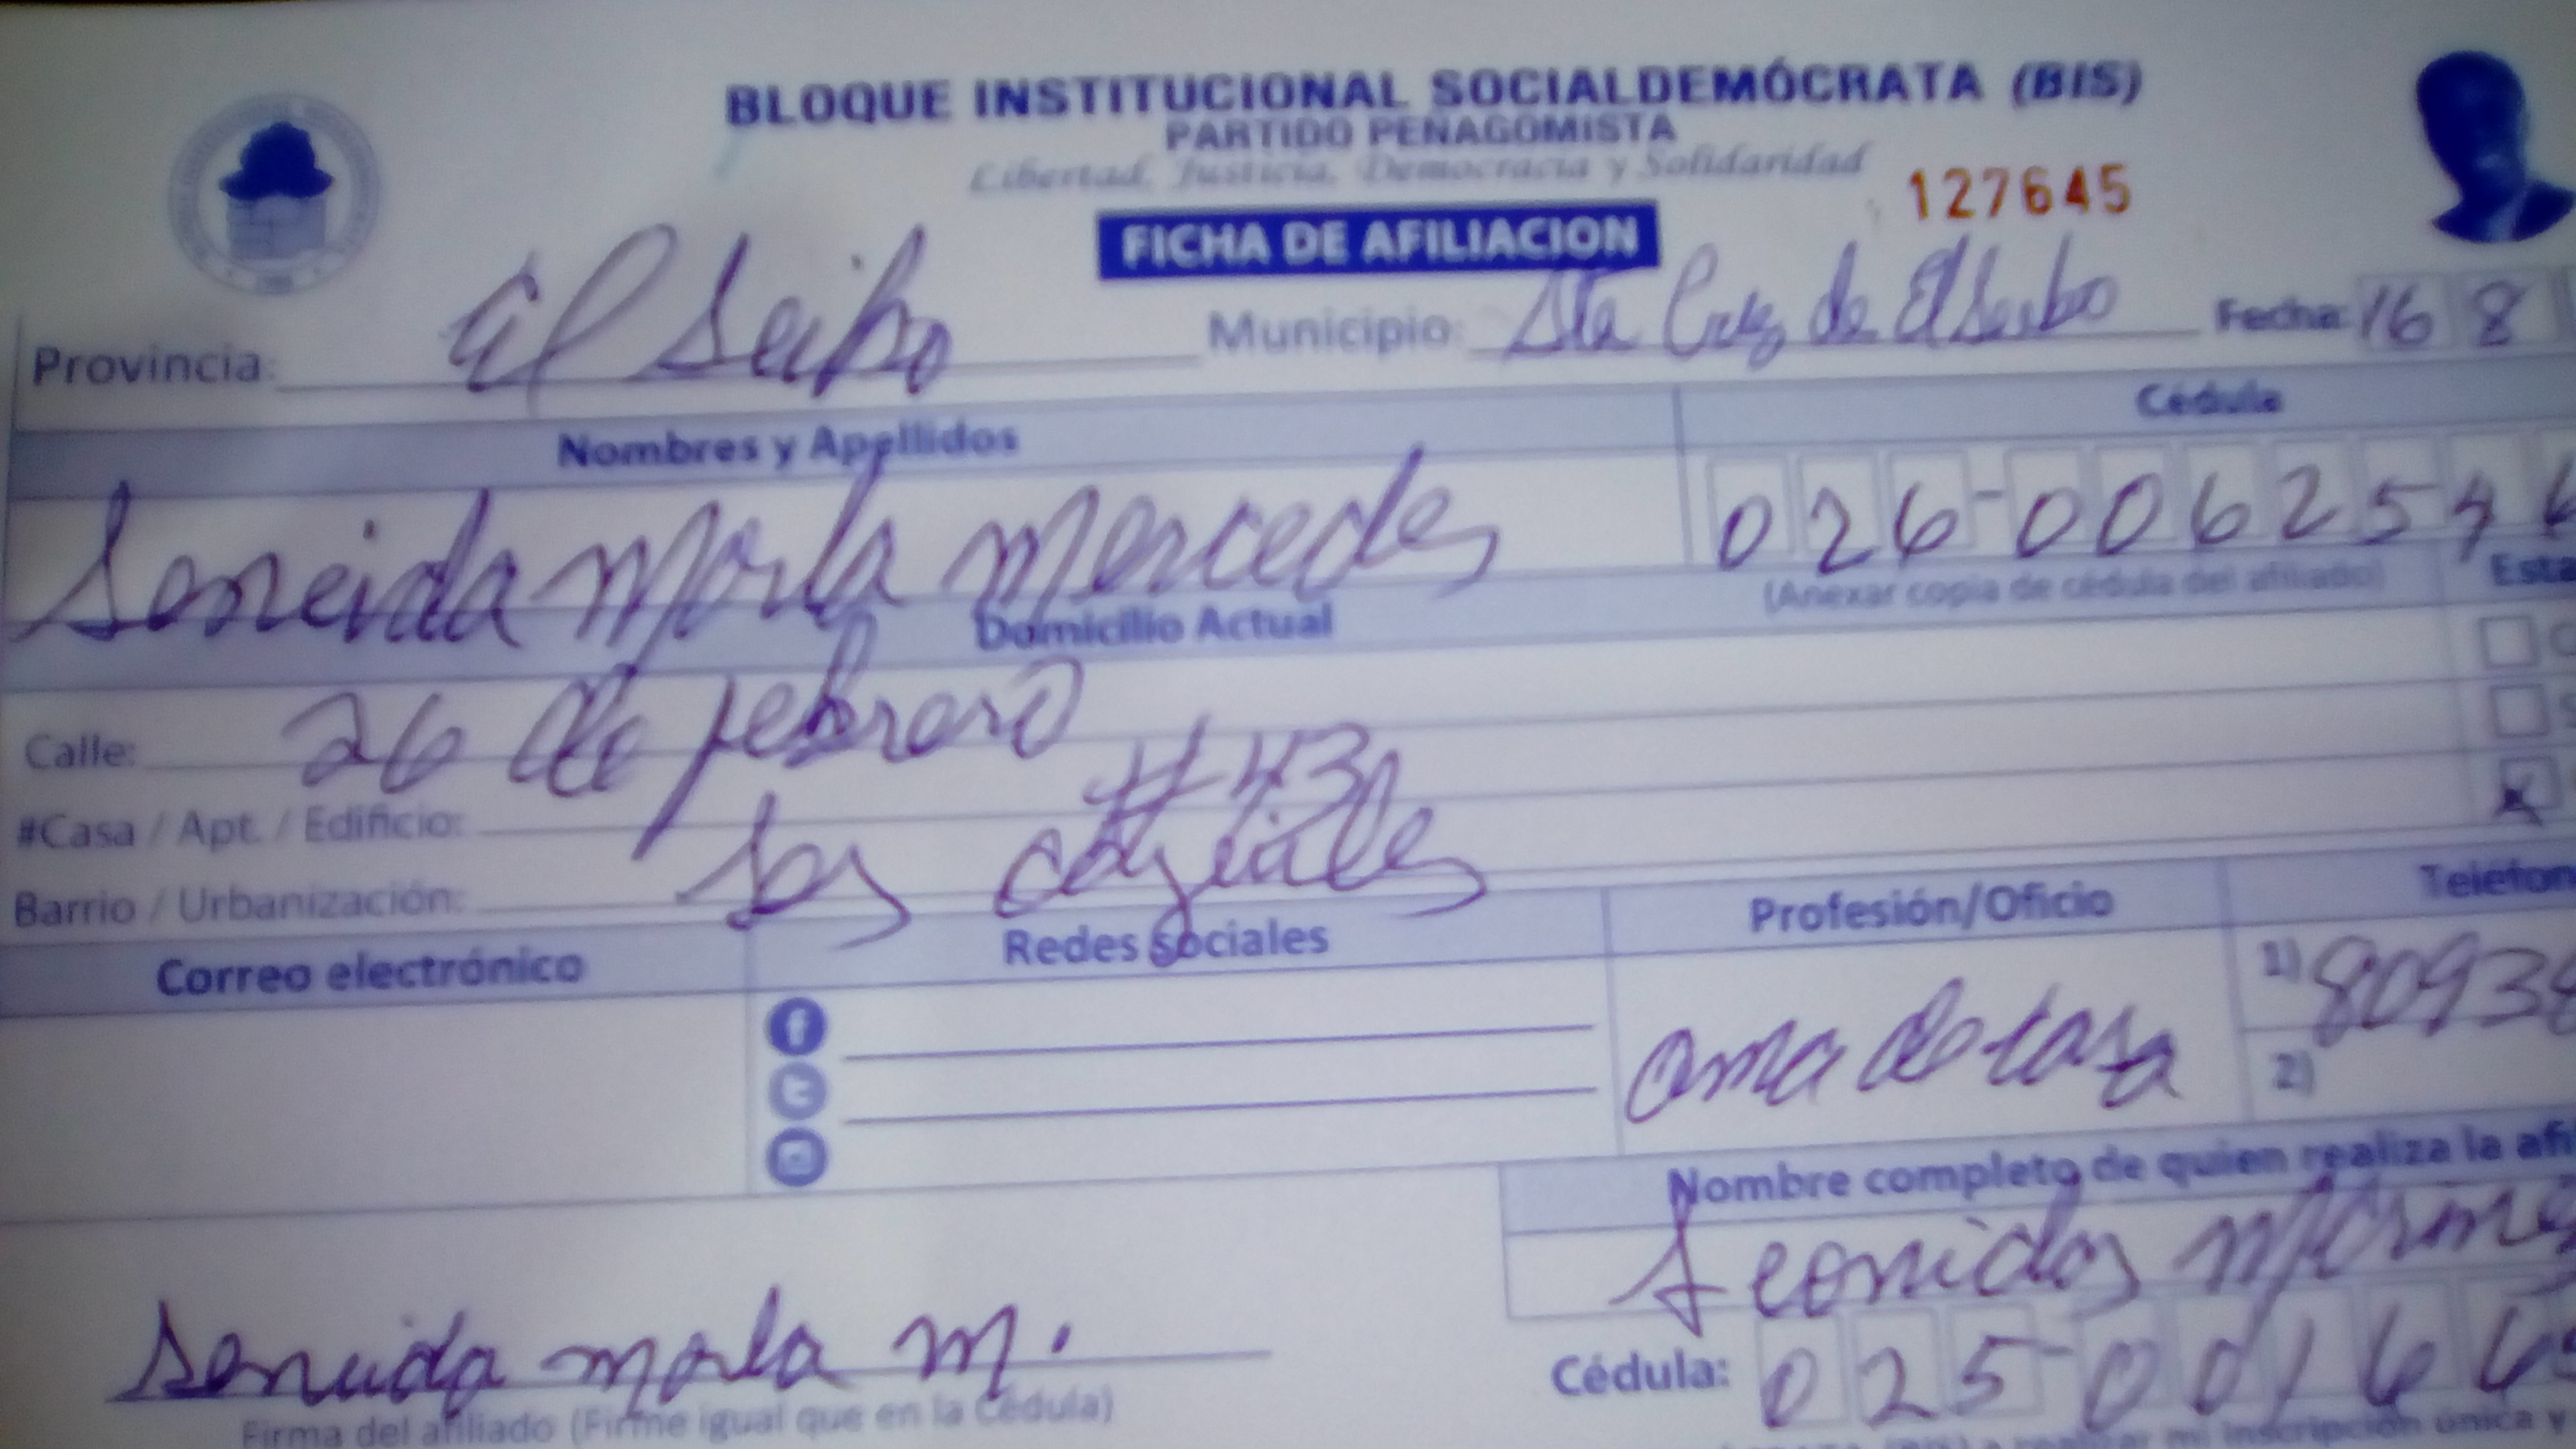 BLOQUE INSTITUCIONAL SOCIALDEMÓCRATA (BIS)
PARTIDO PEÑAGOMISTA
Libertad, Justicia, Democracia y Solidaridad
127645
FICHA DE AFILIACION
Provincia: El Seibo Municipio: Sta Cruz de El Seibo Fecha: 16 8
Nombres y Apellidos Cédula
Seneida Morla Mercedes 026-0062574
(Anexar copia de cédula del afiliado)
Domicilio Actual
Calle: 26 de febrero
#Casa / Apt. / Edificio: #43
Barrio / Urbanización: Los
Correo electrónico Redes sociales Profesión/Oficio
ama de casa
1) 80938
2)
Nombre completo de quien realiza la
Leonidas
Seneida morla m.
Cédula: 025-00166
Firma del afiliado (Firme igual que en la Cédula)